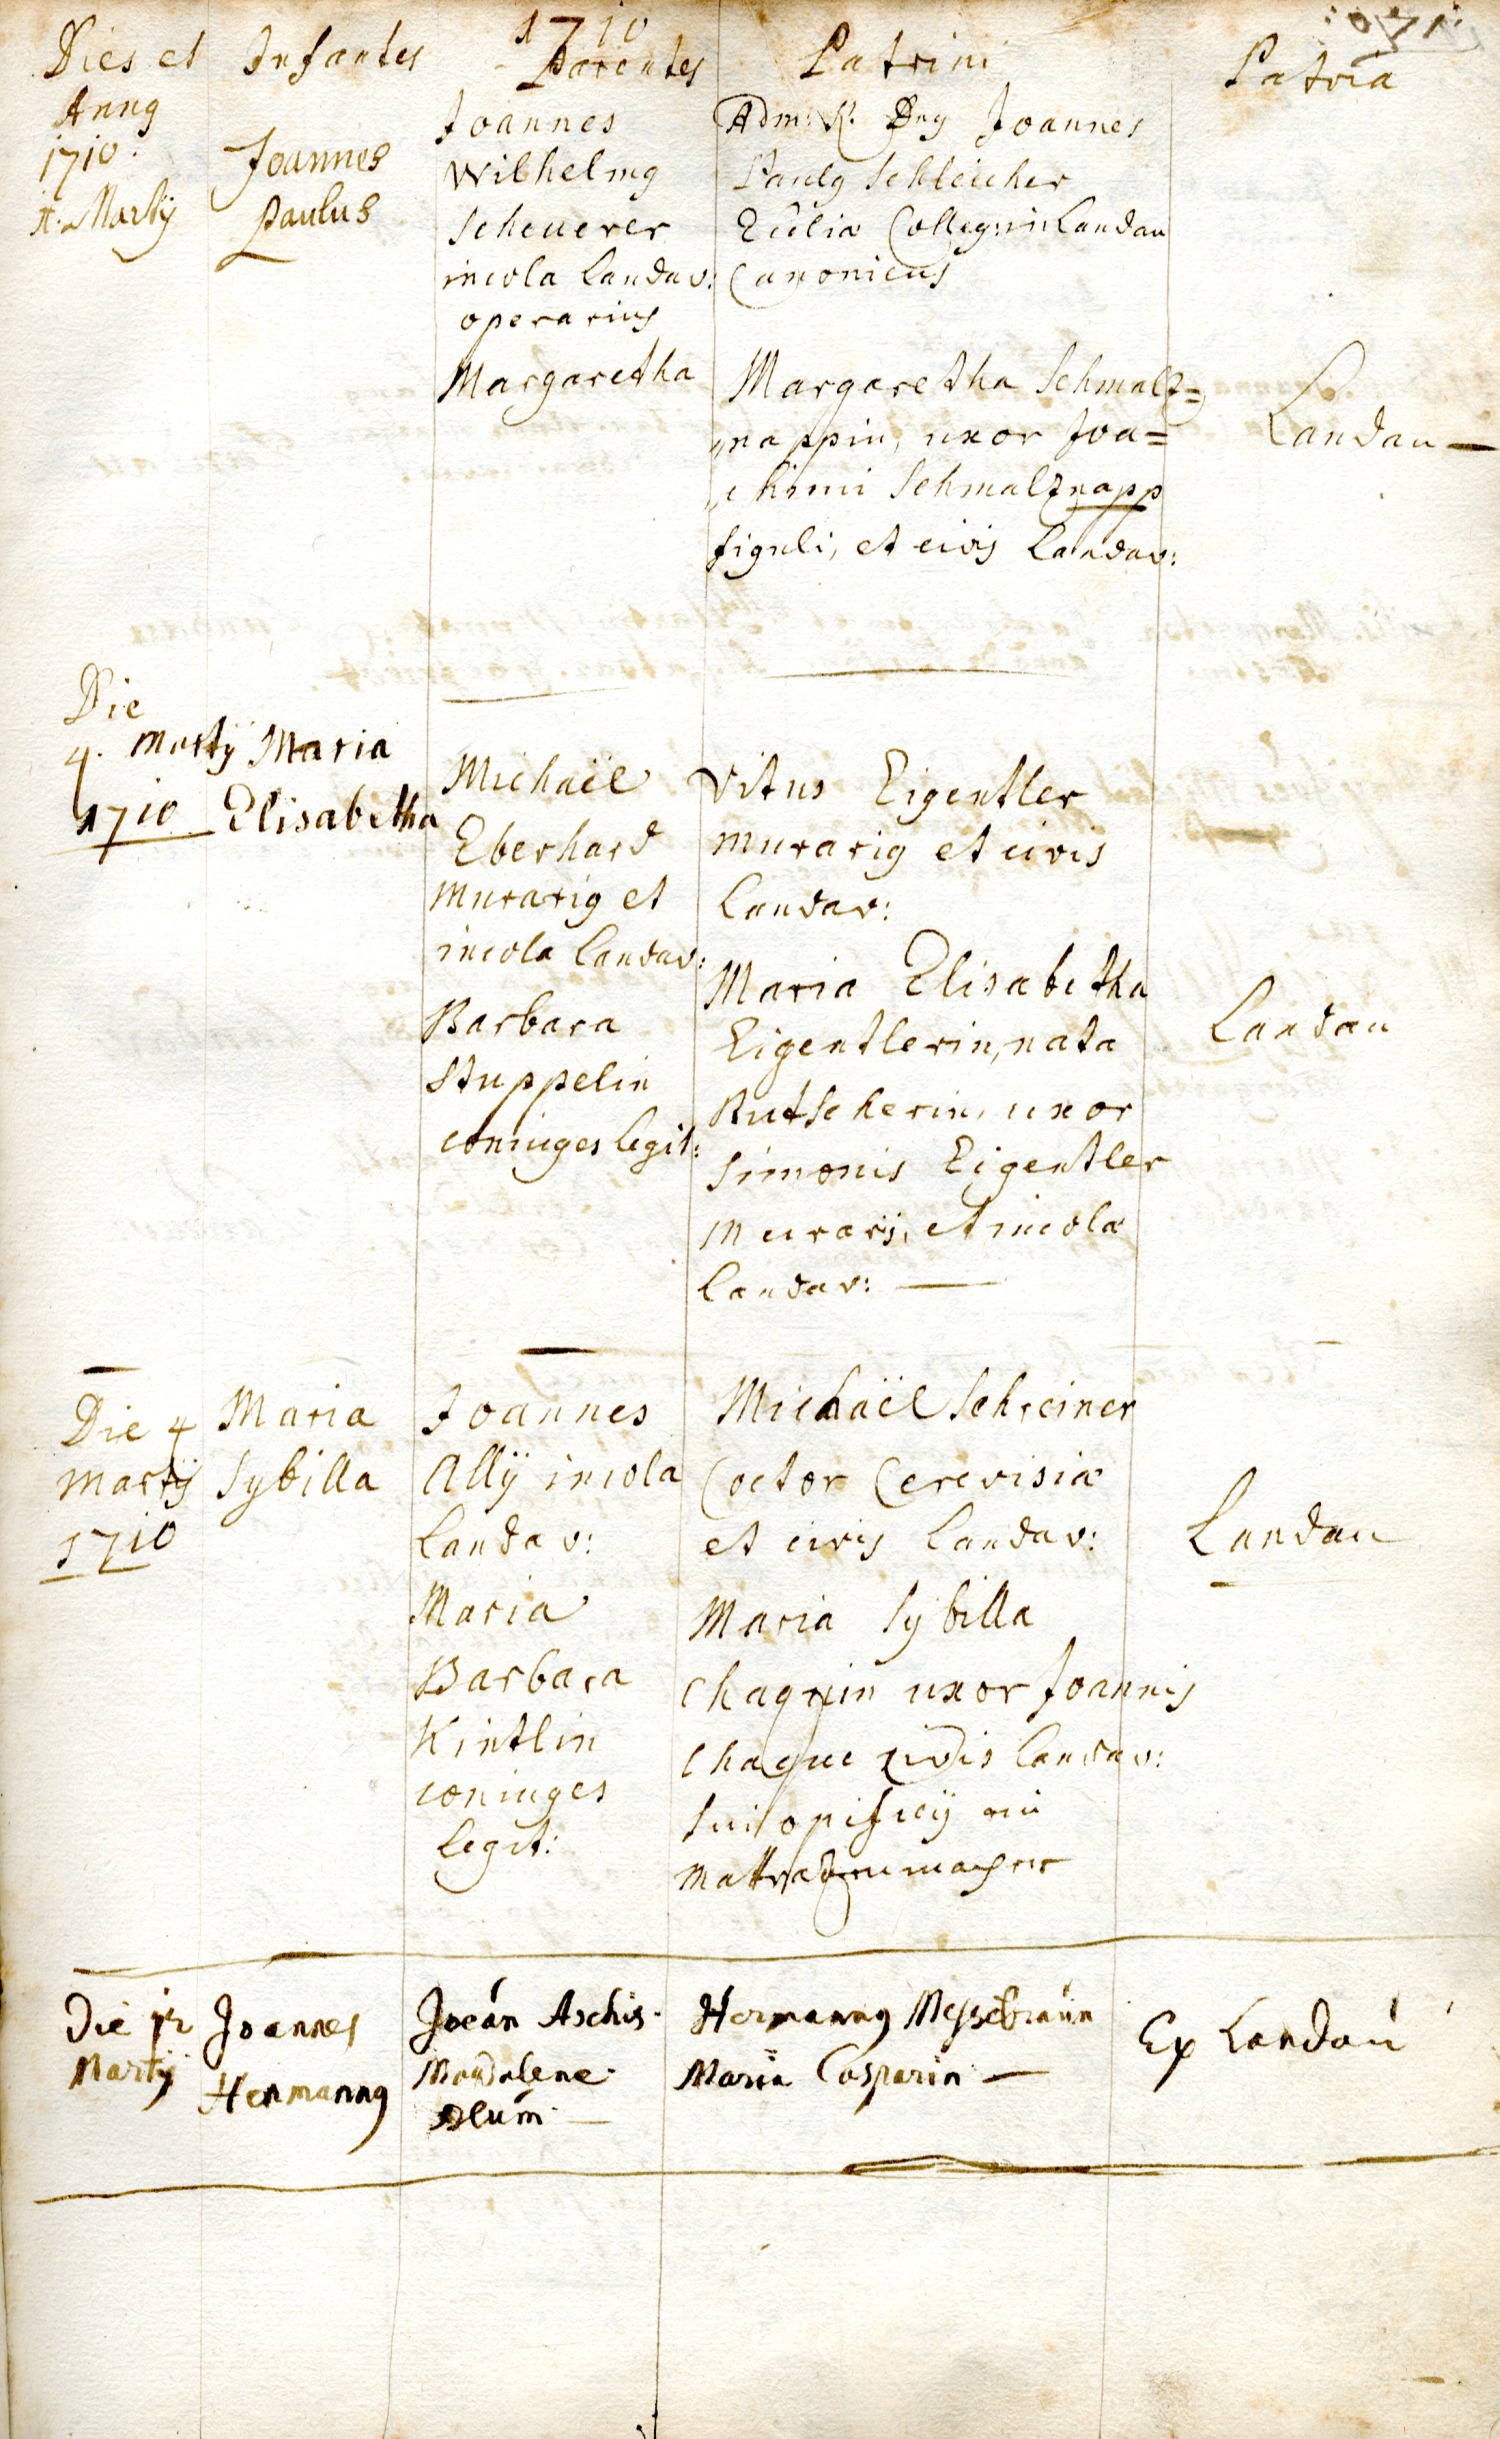 1710
Dies et Infantes Parentes Patrini Patria
Anng
1710.
Martÿ
Joannes
Paulus
Joannes
Wilhelmg
Scheuerer
incola Landav:
operarius
Margaretha
Adm: R. Dng Joannes
Paulg Schleicher
Colleg: in Landau
Canonicus
Margaretha Schmalz=
nappin, uxor Joa=
chimi Schmalznapp
figuli, et civis Landav:
Landau
Die
4. Martÿ
1710
Maria
Elisabetha
Michaël
Eberhard
murarig et
incola Landav:
Barbara
Stuppelin
coniuges legit:
Vitus Eigentler
murarig et civis
Landav:
Maria Elisabetha
Eigentlerin, nata
Rutscherin, uxor
Simonis Eigentler
murarij, et incolæ
Landav:
Landau
Die 4
Martÿ
1710
Maria
Sybilla
Joannes
Allÿ incola
Landav:
Maria
Barbara
Kintlin
coniuges
legit:
Michaël Schreiner
Coctor Cerevisiæ
et civis Landav:
Maria Sybilla
Chaquin uxor Joannis
Chaque civis Landav:
sui opificÿ ein
Landau
Die 12
Martÿ
Joannes
Hermanng
Joean Aschis.
Magdalene
Blum
Hermanng Messebraun
Maria Casparin
Ex Landau